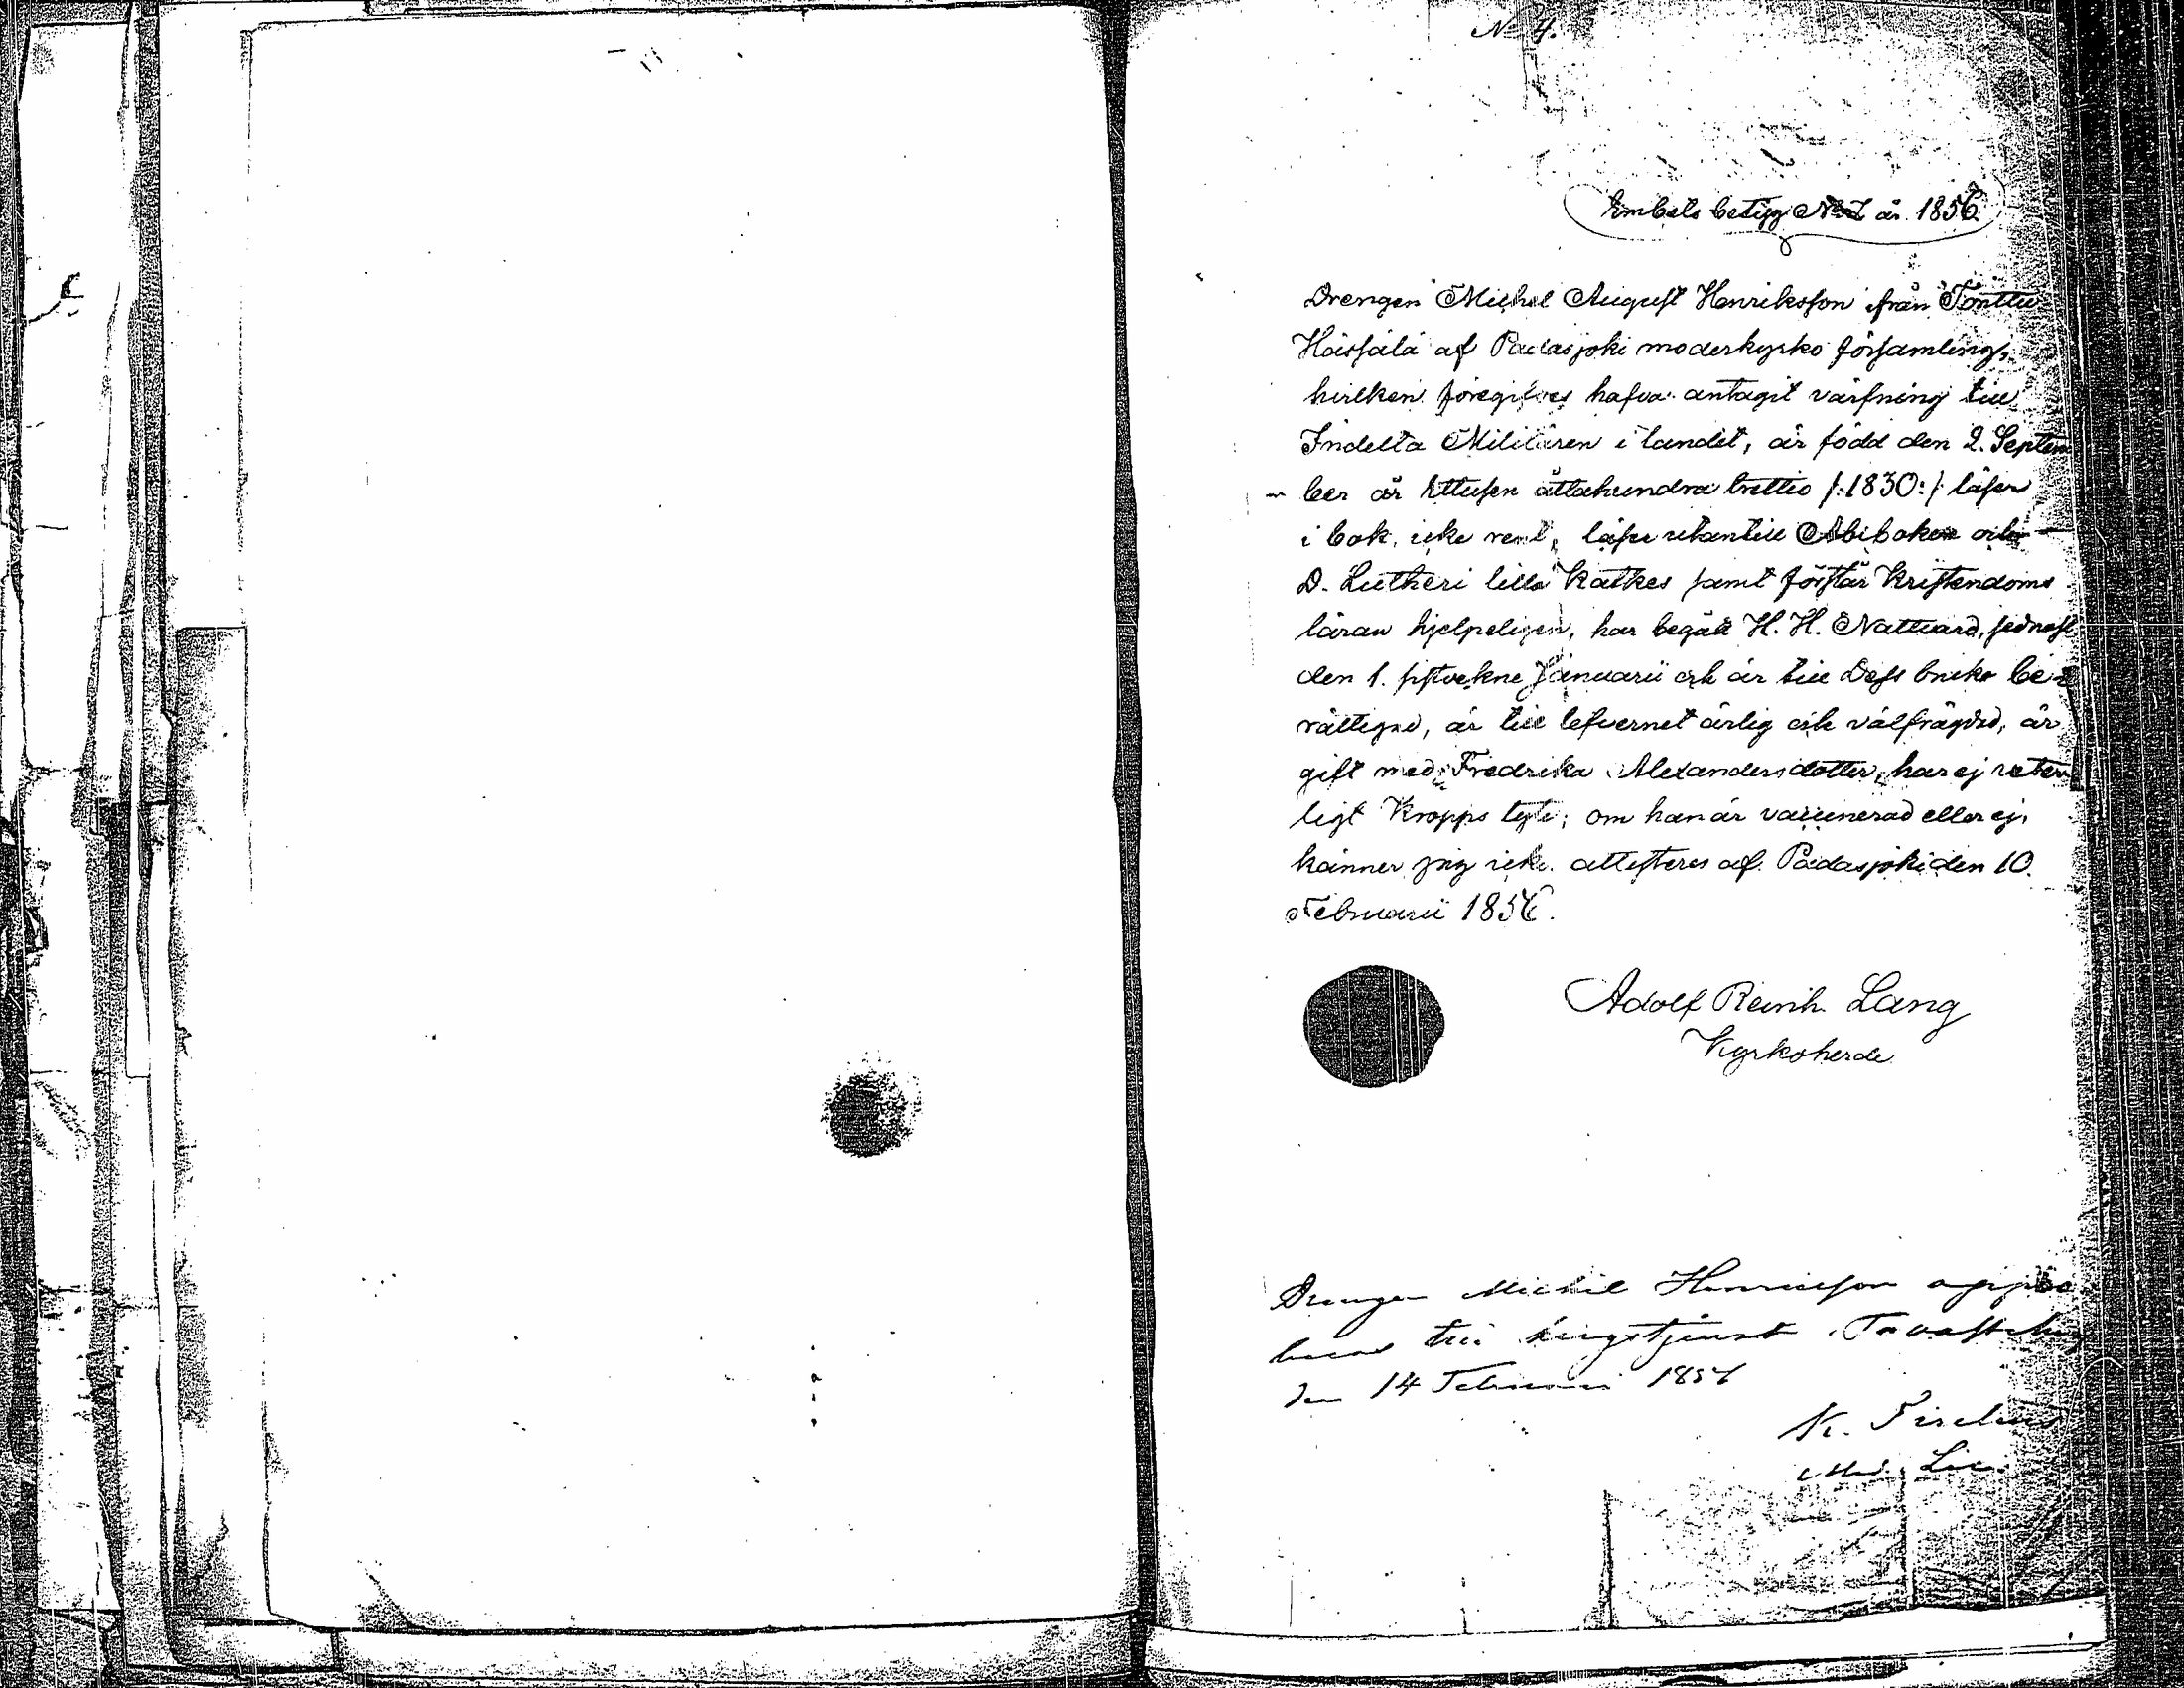 No 4.
Embets betyg No 7 år 1856.
Drengen Michel August Henriksson ifrån Tonttu
Häisälä af Padasjoki moderkyrko församling,
hvilken föregifves hafva antagit värfning till
Indelta Militären i landet, är född den 2. Septem
ber år Ettusen åttahundra trettio /:1830:/ läser
i bok, icke rent, läser utantill Abiboken och
D. Lutheri lilla Katkes samt förstår Kristendoms
läran hjelpeligen, har begått H. H. Nattvard, sednast
den 1. sistvekne Januarii och är till Dess bruk be
rättigad, är till lefvernet ärlig och välfrägdad, är
gift med Fredrika Alexandersdotter, har ej veter
ligt Kropps lyte; om han är vaccinerad eller ej,
känner jag icke. attesteras af. Padasjoki den 10.
Februarii 1856.
Adolf Reinh. Lang
Kyrkoherde
Drengen Michel Henricsson appro
beras till krigstjenst. Tavastehus
den 14 Februari 1856
K.
Med. Lic.